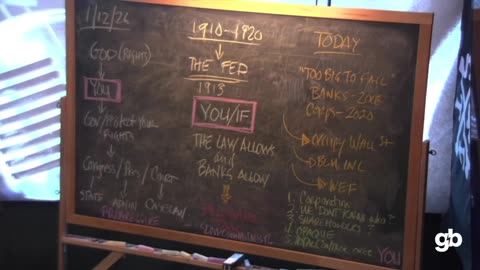 1/12/26
GOD (RIGHTS)
YOU
GOV/PROTECT YOUR
RIGHTS
CONGRESS/PRES/COURT
STATE ADMIN
PROGRESSIVE
1910-1920
THE FED
1913
YOU/IF
THE LAW ALLOWS
and
BANKS ALLOW
TODAY
"TOO BIG TO FAIL"
BANKS - 2008
CORPS - 2020
OCCUPY WALL ST
INC
WEF
1. Corporation
2. WE DON'T KNOW who?
3. SHAREHOLDERS?
4. OPAQUE
YOU
gb